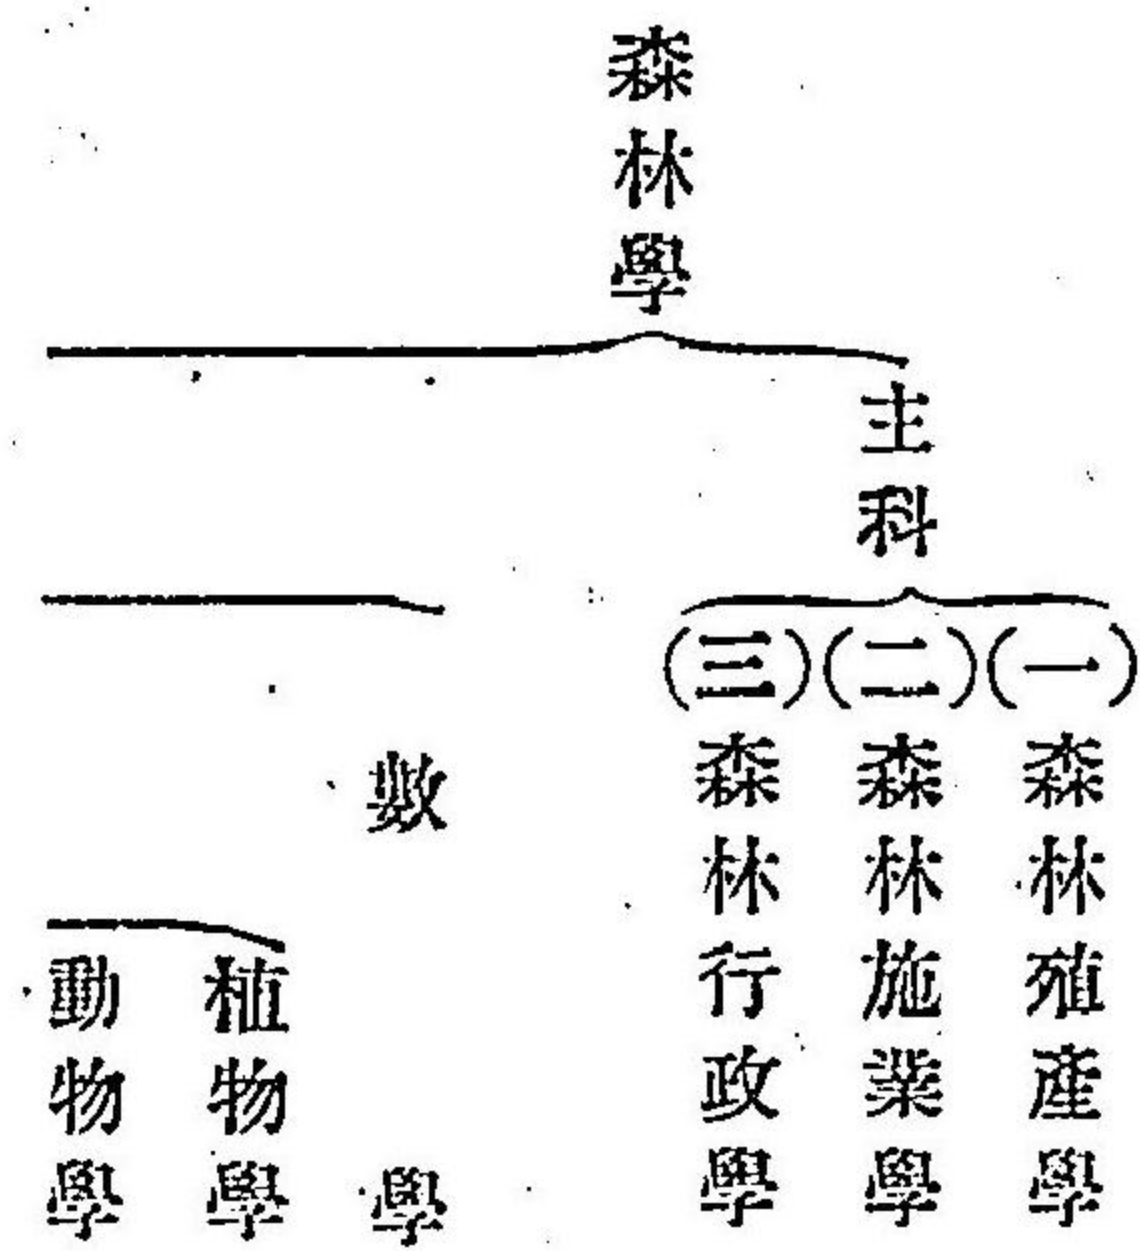 森林學
主科
(一)森林殖產學
(二)森林施業學
(三)森林行政學
數學
植物學
動物學